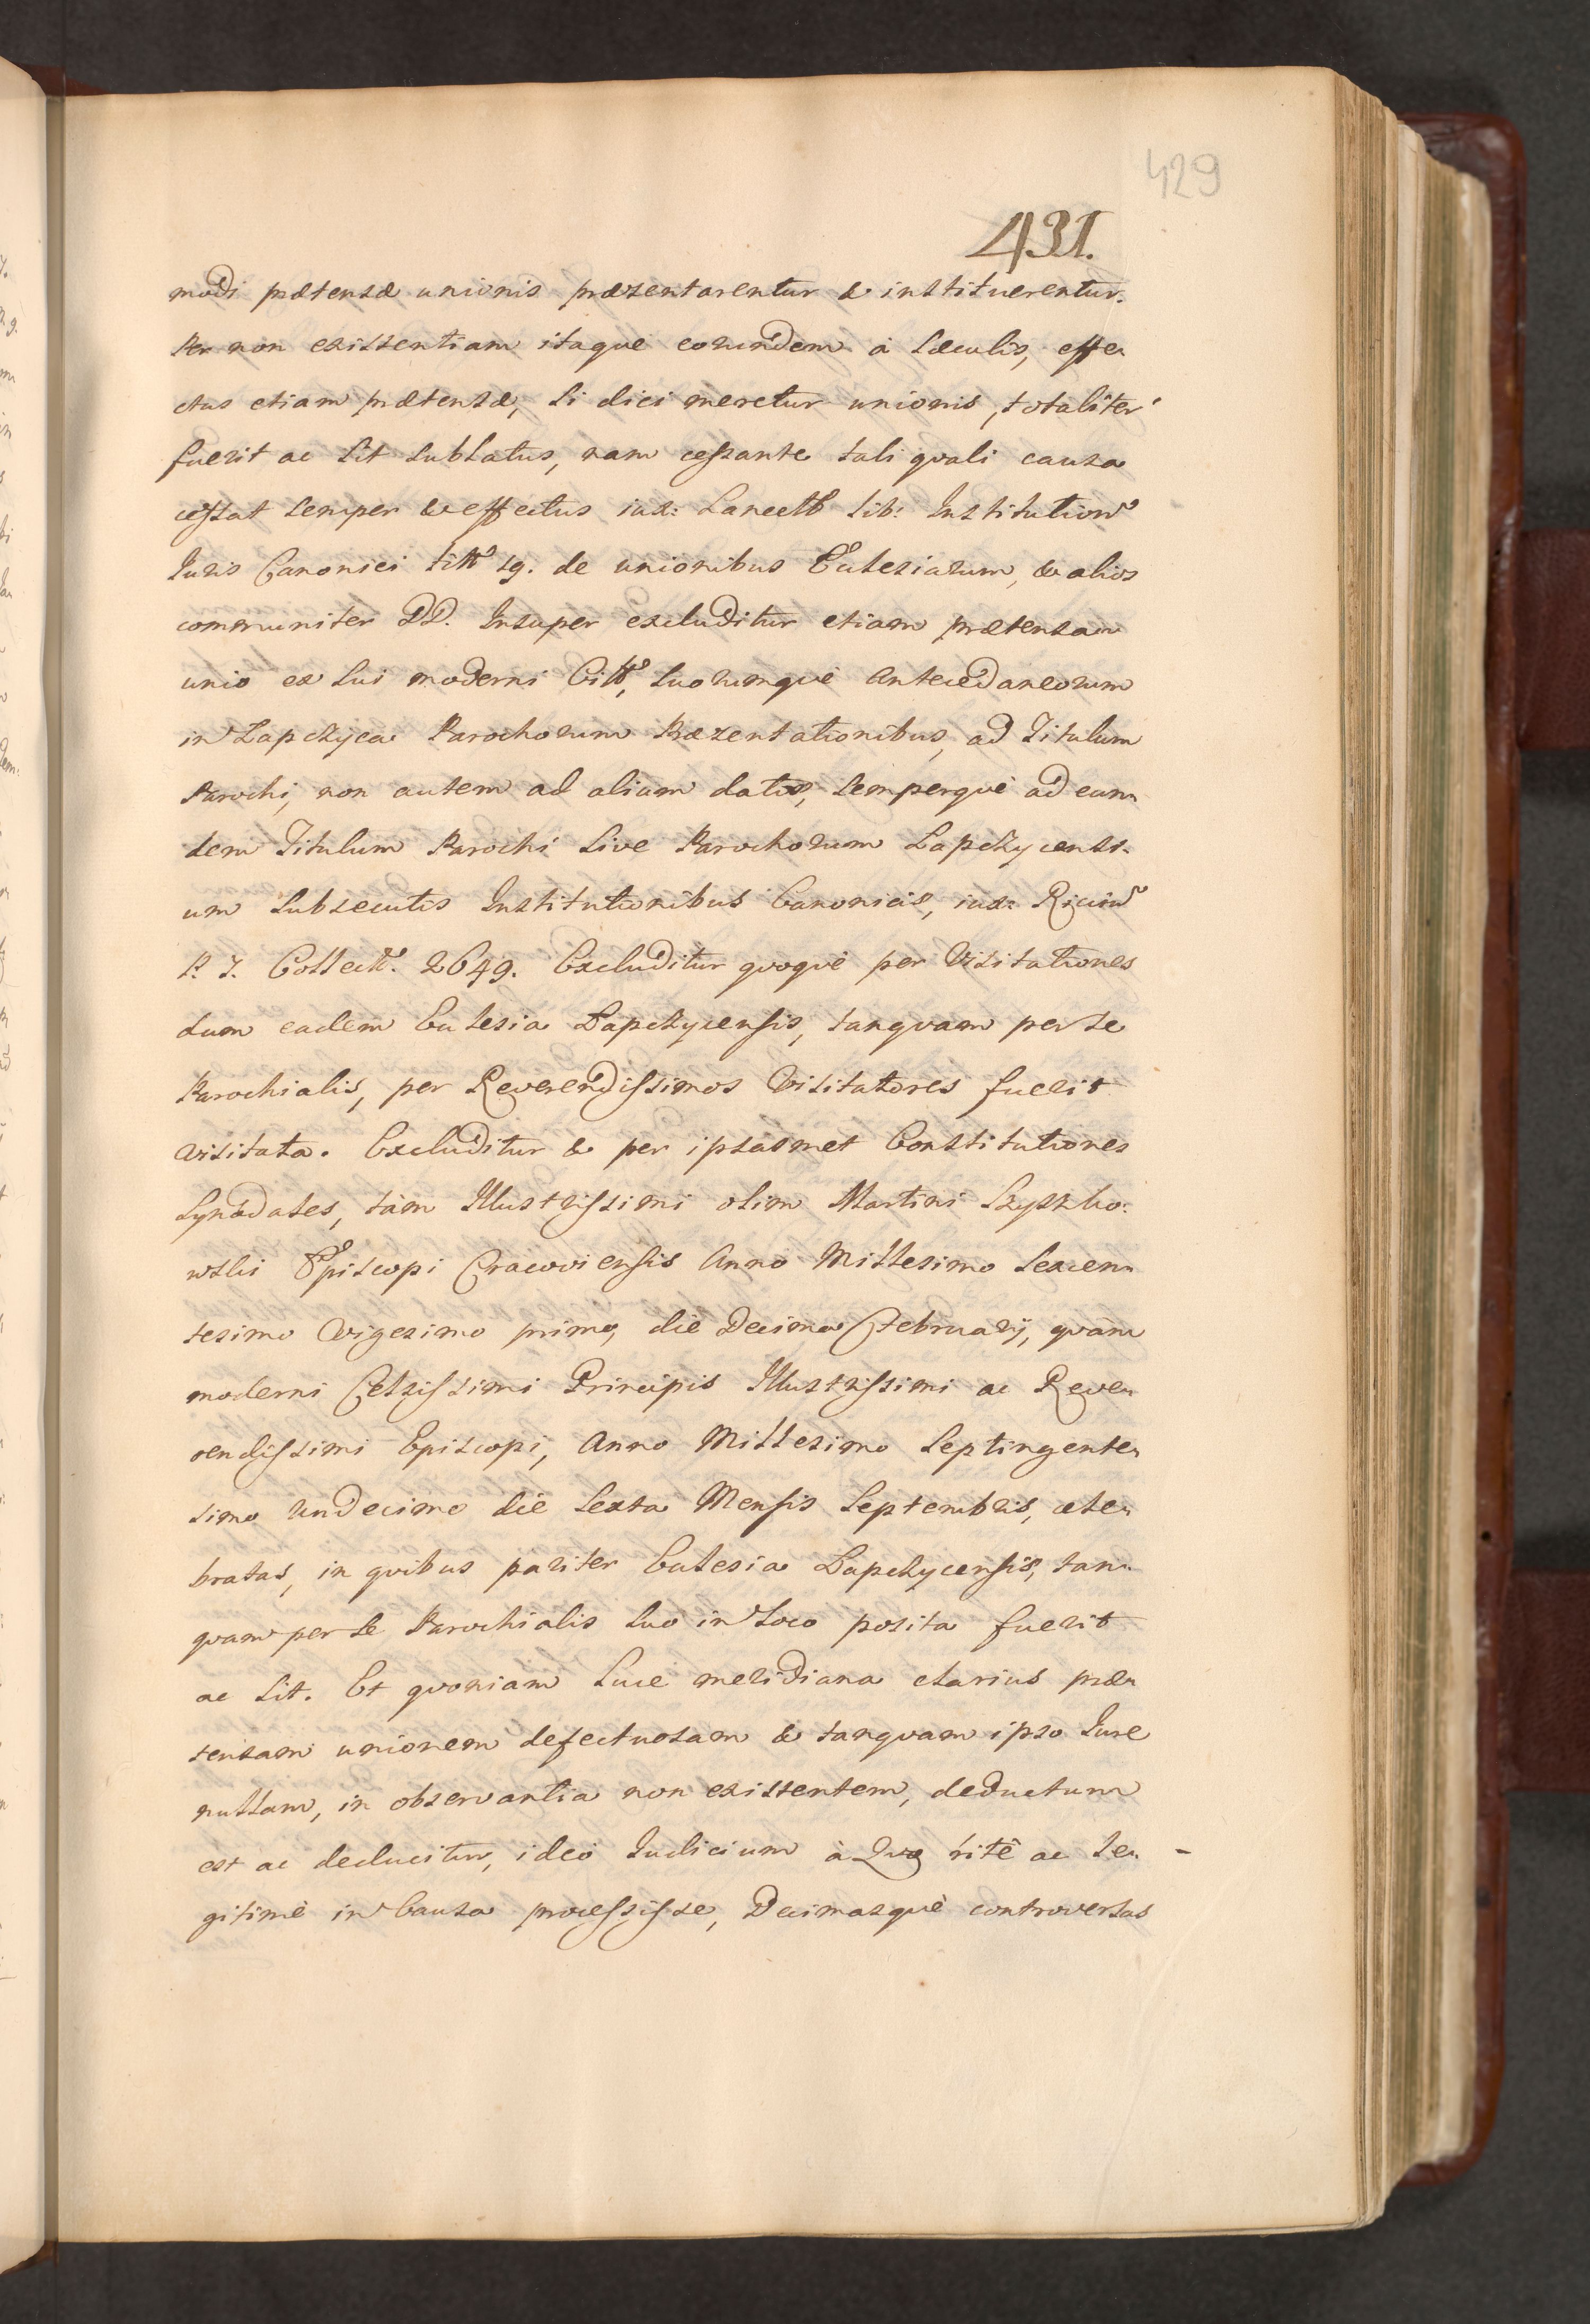 429
431.
modi prætensæ unionis præzentarentur & instituerentur.
Per non existentiam itaque eorundem à sæculis, effe„
ctus etiam prætensæ, si dici meretur unionis, totaliter
fuerit ac sit sublatus, nam cessante tali quali causa
cessat semper & effectus iux: Lancett lib: Institution
Iuris Canonici titt 19. de unionibus Ecclesiarum, & alios
communiter DD. Insuper excluditur etiam prætensam
unio ex sui moderni Citt, suorumque Antecedaneorum
in Łapczyca Parochorum Præzentationibus, ad Titulum
Parochi, non autem ad alium datis, semperque ad eun„
dem Titulum Parochi sive Parochorum Łapczycensi„
um subsecutis Institutionibus Canonicis, iux: Riccium
P. I. Collect. 2649. Excluditur quoque per Visitationes
dum eadem Ecclesia Łapczycensis, tanquam per se
Parochialis, per Reverendissimos Visitatores fuerit
visitata. Excluditur & per ipsasmet Constitutiones
Synodales, tàm Illustrissimi olim Martini Szyszko:
wski Episcopi Cracoviensis Anno Millesimo sexcen„
tesimo vigesimo primo, die Decima February, quàm
moderni Celsissimi Principis Illustrissimi ac Reve„
rendissimi Episcopi, Anno Millesimo Septingente„
simo undecimo die sexta Mensis Septembris, cele„
bratas, in quibus pariter Ecclesia Łapczycensis, tan„
quam per se Parochialis suo in loco posita fuerit
ac sit. Et quoniam luce meridiana clarius præ„
tensam unionem defectuosam & tanquam ipso Iure
nullam, in observantia non existentem, deductum
est ac deducitur, ideo Iudicium à Quo ritè ac le„
gitimè in Causa processisse, Decimasque controversas